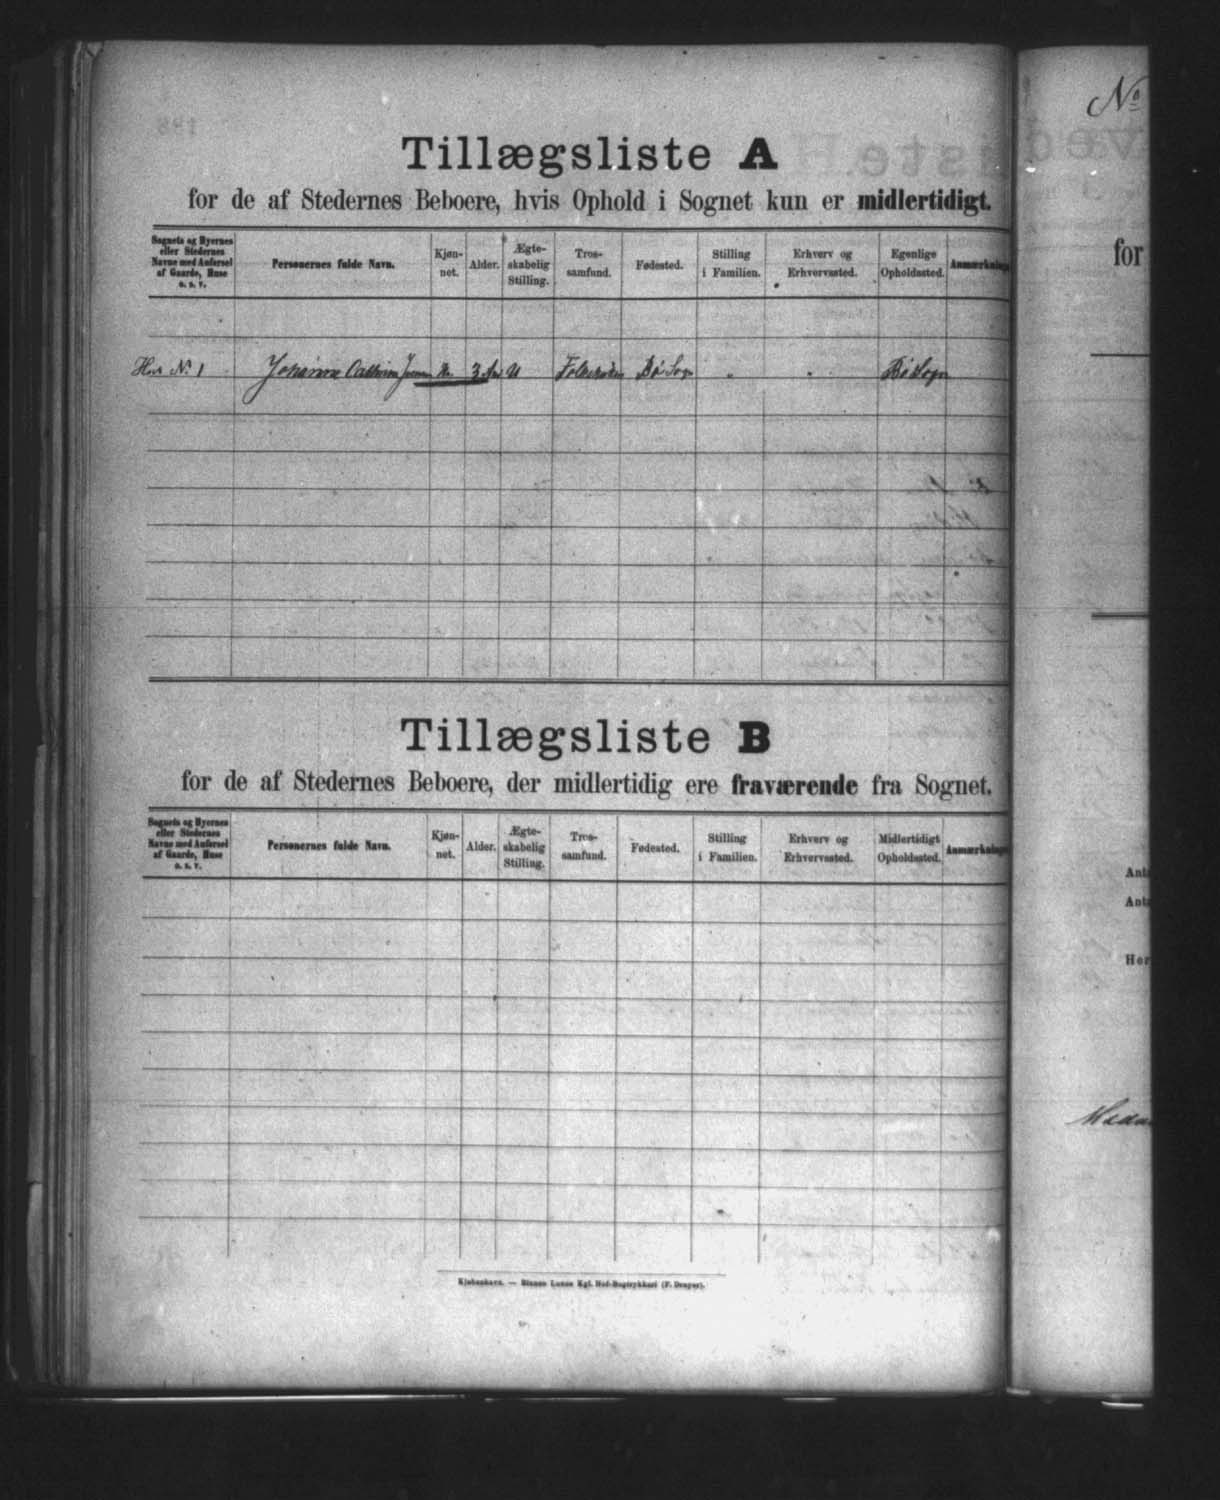 Tillægsliste A
for de af Stedernes Beboere, hvis Ophold i Sognet kun er midlertidigt.
Sognets og Byernes eller Stedernes Navne med Anførsel af Gaarde, Huse o. s. v.
Personernes fulde Navn.
Kjøn-
net.
Alder.
Ægte-
skabelig
Stilling.
Tros-
samfund.
Fødested.
Stilling
i Familien.
Erhverv og
Erhvervssted.
Egenlige
Opholdssted.
Anmærkninger
No 1 Johanne Cathrine 3 U Folkekirken Bø Sogn " " Bø Sogn
Tillægsliste B
for de af Stedernes Beboere, der midlertidig ere fraværende fra Sognet.
Sognets og Byernes eller Stedernes Navne med Anførsel af Gaarde, Huse o. s. v.
Personernes fulde Navn.
Kjøn-
net.
Alder.
Ægte-
skabelig
Stilling.
Tros-
samfund.
Fødested.
Stilling
i Familien.
Erhverv og
Erhvervssted.
Midlertidigt
Opholdssted.
Anmærkninger
Kjøbenhavn. — Bianco Lunos Kgl. Hof-Bogtrykkeri (F. Dreyer).
No
for
Ant
Ant
Her